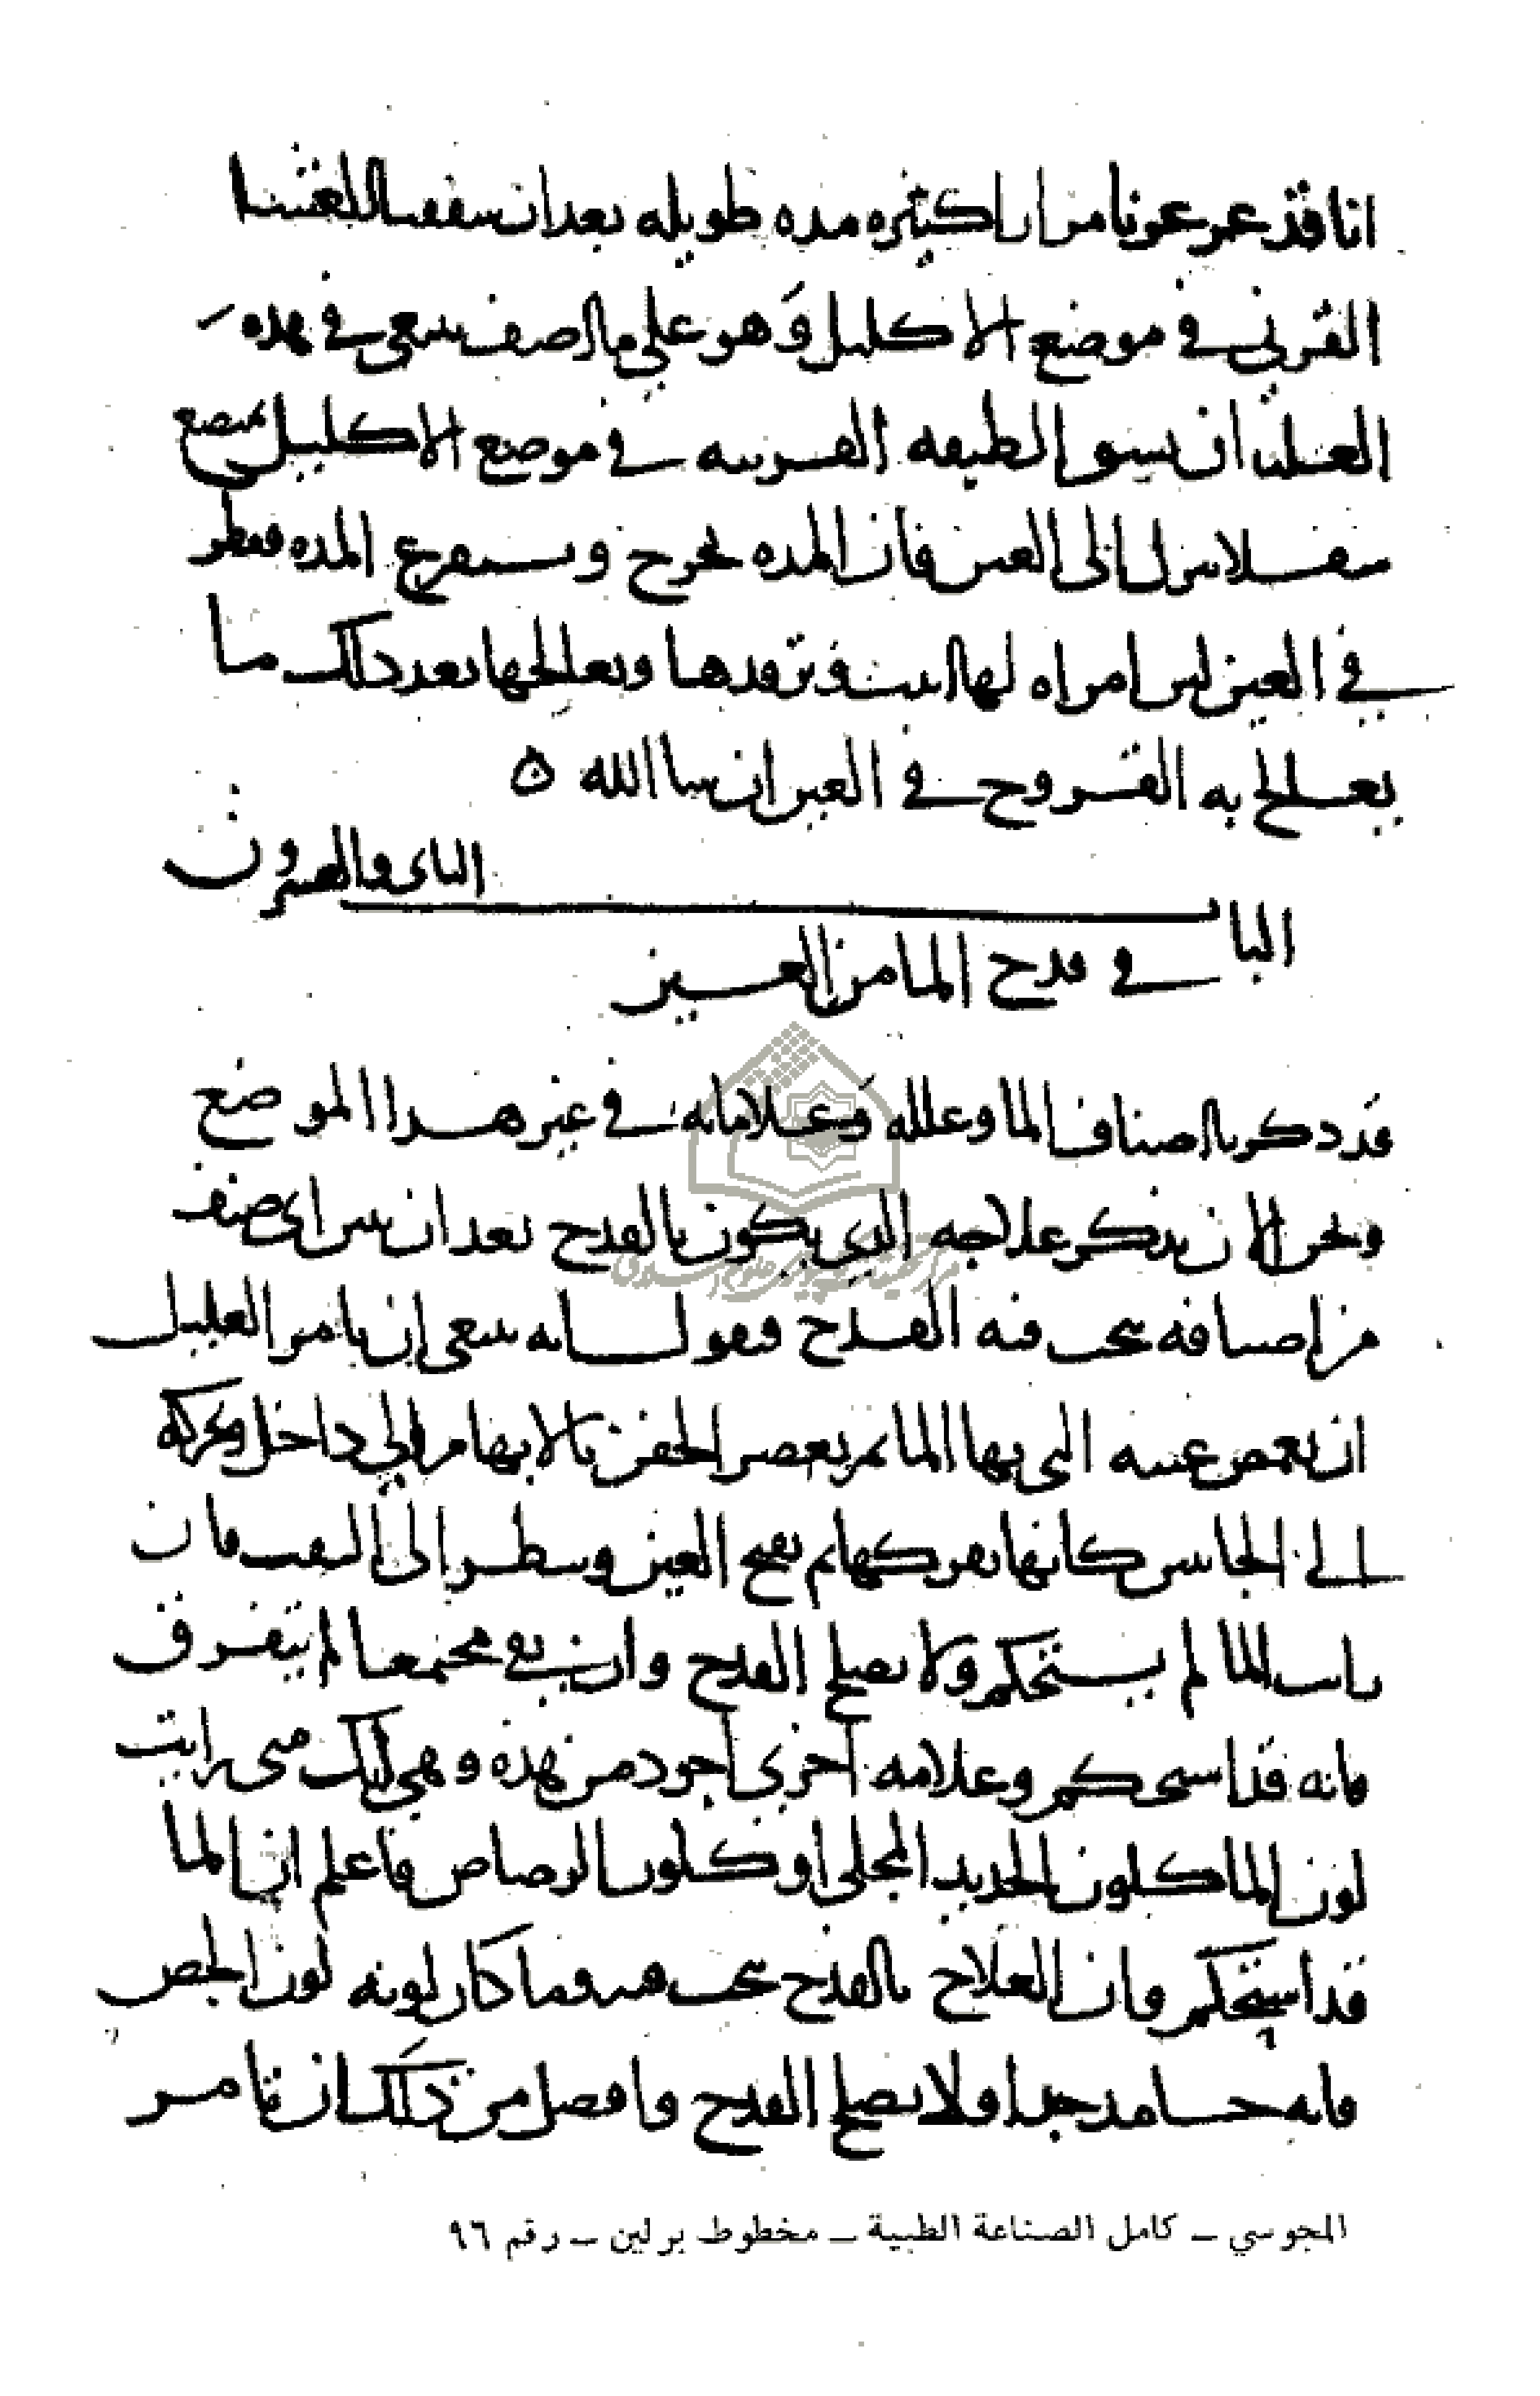 انا قد عرعونا مرارا كثيره مده طويله بعد ان سففنا للغشا
القرني في موضع الاكليل وهو على ما اصف ينبغي في هذه
العله ان يشق الطبقه القرنيه في موضع الاكليل بمبضع
فان المده تخرج وتستفرغ المده فقطر
في العين لبن امراه لها ابنت وترفدها وتعالجها بعد ذلك ما
يعالج به القروح في العين ان شا الله ه
الثاني والعشرون
الباب
في قدح الما من العين
قد ذكرنا اصناف الما وعلله وعلاماته في غير هذا الموضع
ونحن الان نذكر علاجه الذي يكون بالقدح بعد ان نبين اي صنف
من اصنافه يجب فيه القدح فنقول انه ينبغي ان يامر العليل
ان يغمض عينه التي بها الما ثم يعصر الجفن بالابهام الى داخل ويحركه
الى الجانبين كانها يفركها ثم يفتح العين وينظر الى الثقب فان
رايت الما لم يستحكم ولا يصلح القدح وان بقي مجتمعا لم يتفرق
فانه قد استحكم وعلامه اخرى اجود من هذه وهي انك متى رايت
لون الما كلون الحديد المجلى او كلون الرصاص فاعلم ان الما
قد استحكم وان العلاج بالقدح يجب فيه وما كان لونه لون الجص
فانه جامد جدا ولا يصلح القدح وافضل من ذلك ان تامر
المجوسي – كامل الصناعة الطبية – مخطوط برلين – رقم ٩٦
مركز تحقيقات كامپيوترى علوم اسلامى